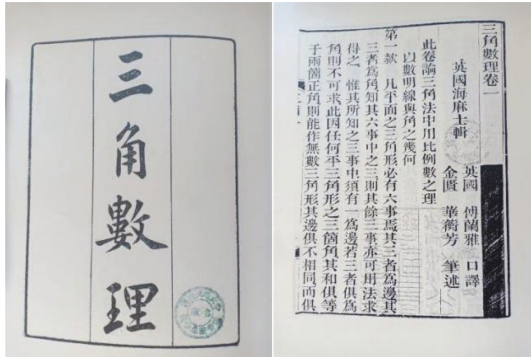 三角數理
三角數理卷一
英國海麻士輯
英國 傅蘭雅 口譯
金匱 華蘅芳 筆述
此卷論三角法中用比例數之理
以數明線與角之幾何
第一款 凡平面之三角形必有六事焉其三者爲邊其
三者爲角知其六事中之三則其餘三事亦可用法求
得之惟其所知之三事中須有一爲邊若三者俱爲
角則不可求此因任何平三角形之三箇角其和俱等
于兩箇正角則能作無數三角形其邊俱不相同而俱